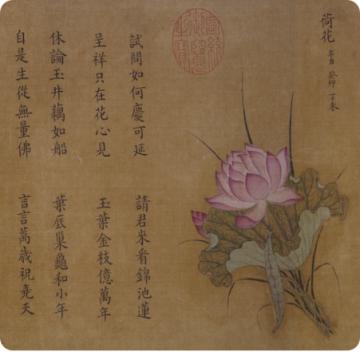 荷花
試問如何慶可延 請君來看錦池蓮
呈祥只在花心見 玉葉金枝億萬年
休論玉井藕如船 葉底巢龜和小年
自是生從無量佛 言言萬歲祝堯天